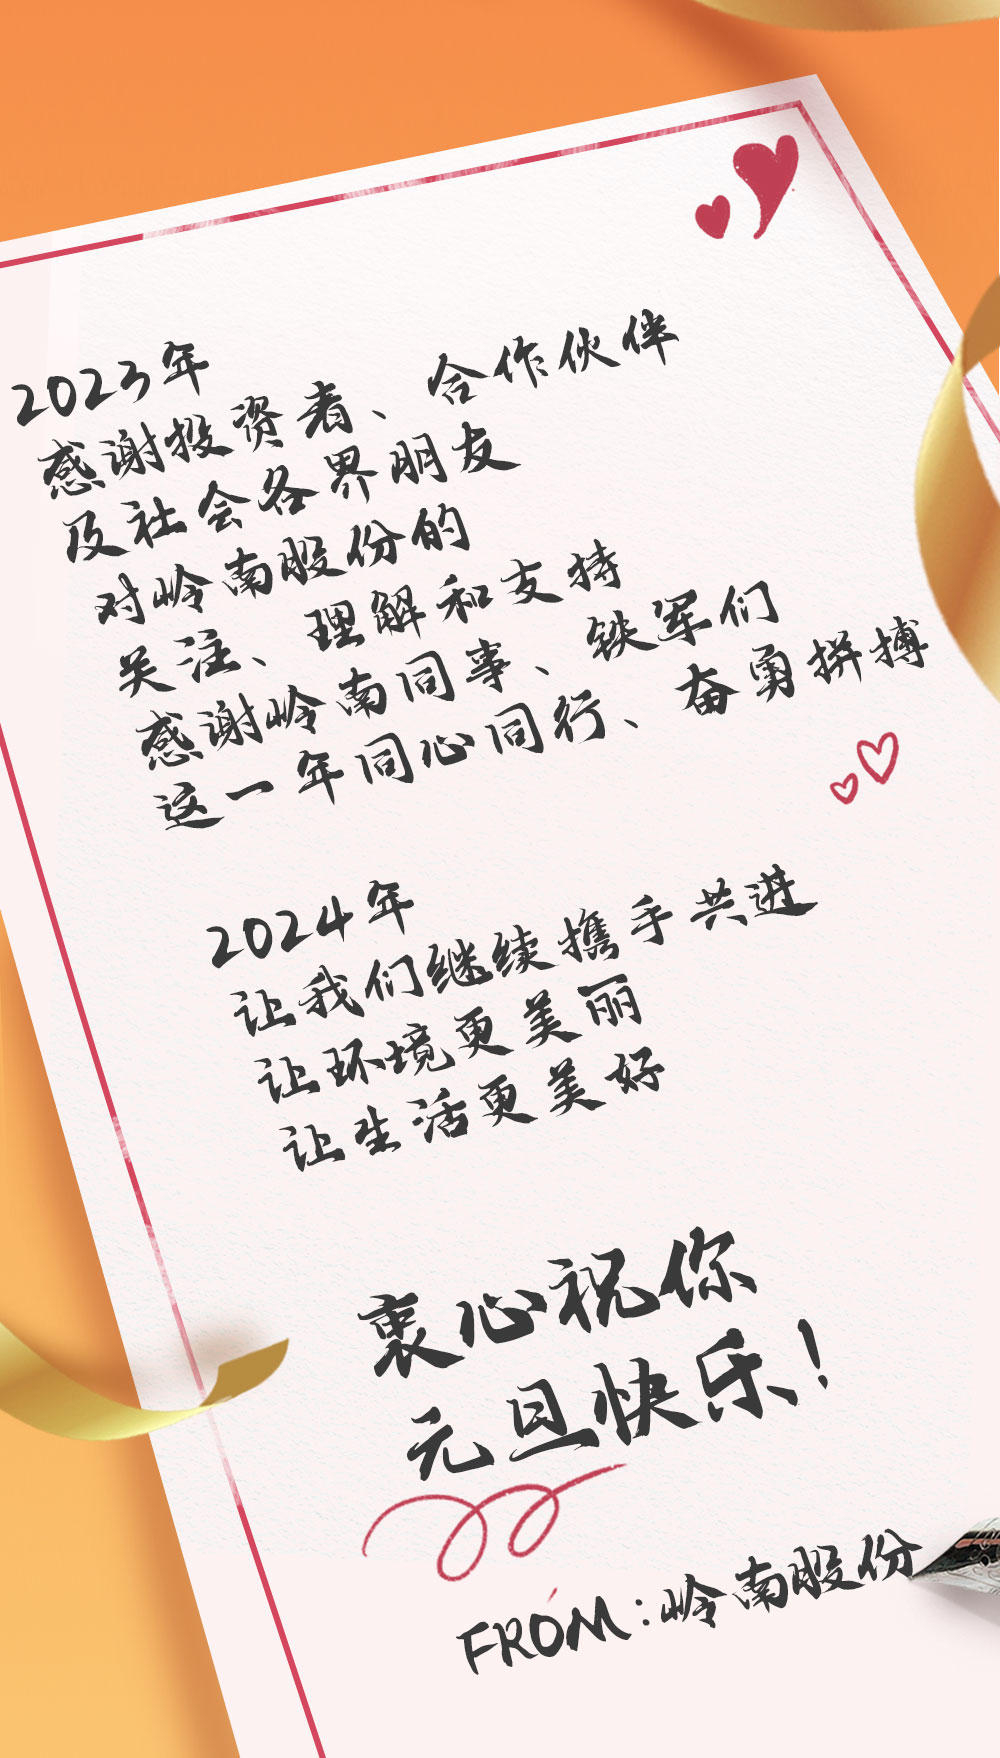 2023年
感谢投资者、合作伙伴
及社会各界朋友
对岭南股份的
关注、理解和支持
感谢岭南同事、铁军们
这一年同心同行、奋勇拼搏
2024年
让我们继续携手共进
让环境更美丽
让生活更美好
衷心祝你
元旦快乐！
FROM：岭南股份